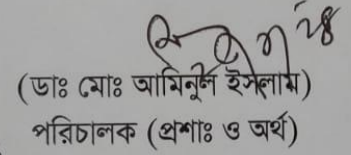 (ডাঃ মোঃ আমিনুল ইসলাম)
পরিচালক (প্রশাঃ ও অর্থ)